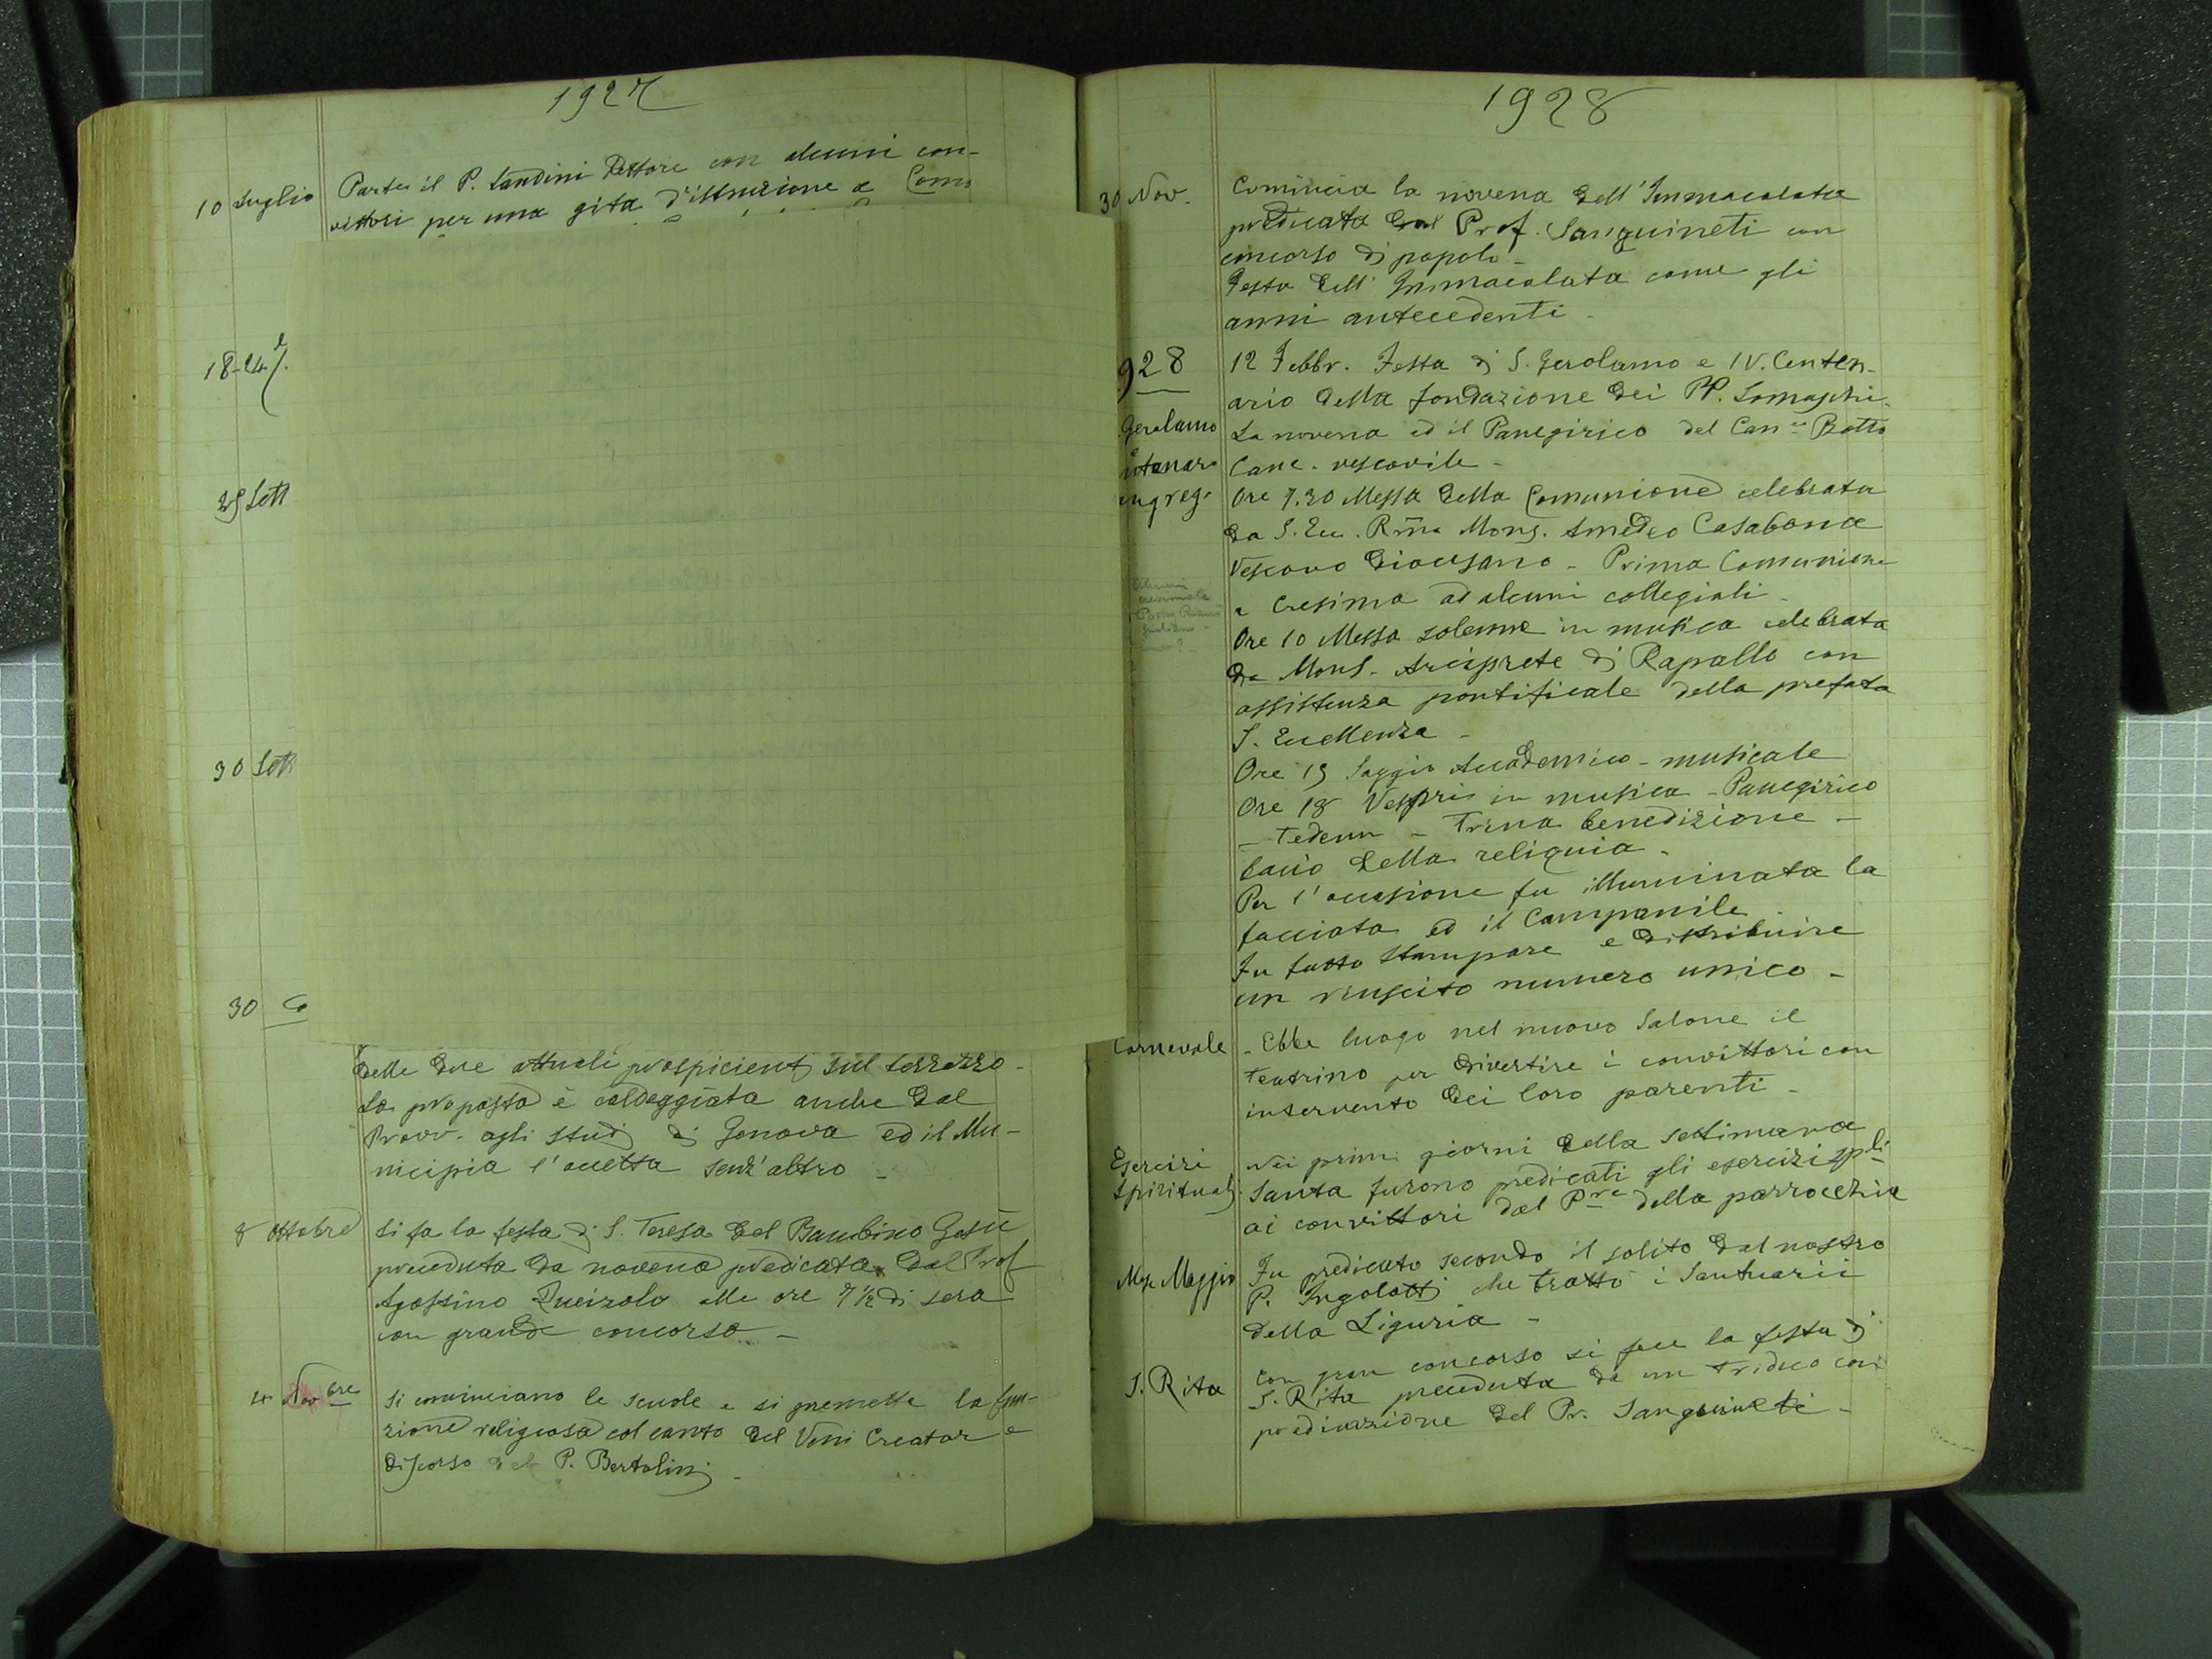 1927
10 Luglio Parte il P. Landini Rettore con alcuni con-
vittori per una gita d'istruzione a Como
18-24
25 Sett
30 Sett
30
delle due attuali prospicienti sul terrazzo -
La proposta è caldeggiata anche dal
Provv. agli studi di Genova ed il Mu-
nicipio l'accetta senz'altro -
8 Ottobre Si fa la festa di S. Teresa del Bambino Gesù
preceduta da novena predicata dal Prof
Agostino Queirolo alle ore 7 1/2 di sera
con grande concorso -
4 Novbre Si cominciano le scuole e si premette la fun-
zione religiosa col canto del Veni Creator e
discorso del P. Bertolini -
1928
30 Nov. Comincia la novena dell'Immacolata
predicata dal Prof. Sanguineti con
concorso di popolo -
Festa dell'Immacolata come gli
anni antecedenti -
928 12 Febbr. Festa di S. Gerolamo e IV. Centen-
ario della fondazione dei PP. Somaschi.
Gerolamo La novena ed il Panegirico del Can.co Botto
ntenario Canc. vescovile -
ongreg. Ore 7.30 Messa della Comunione celebrata
da S. Ecc. Rma Mons. Amedeo Casabona
Vescovo Diocesano - Prima Comunione
e Cresima ad alcuni collegiali -
Ore 10 Messa solenne in musica celebrata
da Mons. Arciprete di Rapallo con
assistenza pontificale della prefata
S. Eccellenza -
Ore 15 Saggio Accademico - musicale
Ore 18 Vespri in musica - Panegirico
- Tedeum - Trina benedizione -
bacio della reliquia -
Per l'occasione fu illuminata la
facciata ed il Campanile
Fu fatto stampare e distribuire
un riuscito numero unico -
Carnevale - Ebbe luogo nel nuovo Salone il
teatrino per divertire i convittori con
intervento dei loro parenti -
Esercizi Nei primi giorni della settimana
spirituali Santa furono predicati gli esercizi spli
ai convittori dal Pre della parrocchia
Mese Maggio Fu predicato secondo il solito dal nostro
P. Ingolotti che trattò i Santuarii
della Liguria -
S. Rita Con gran concorso si fece la festa di
S. Rita preceduta da un triduo con
predicazione del Pr. Sanguineti -